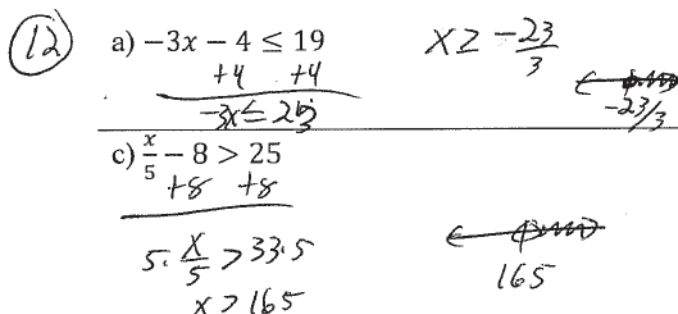 12 a) −3x − 4 ≤ 19 x ≥ -23/3
+4 +4
-3x ≤ 23
-23/3
c) x/5 − 8 > 25
+8 +8
5 · x/5 > 33 · 5
165
x > 165